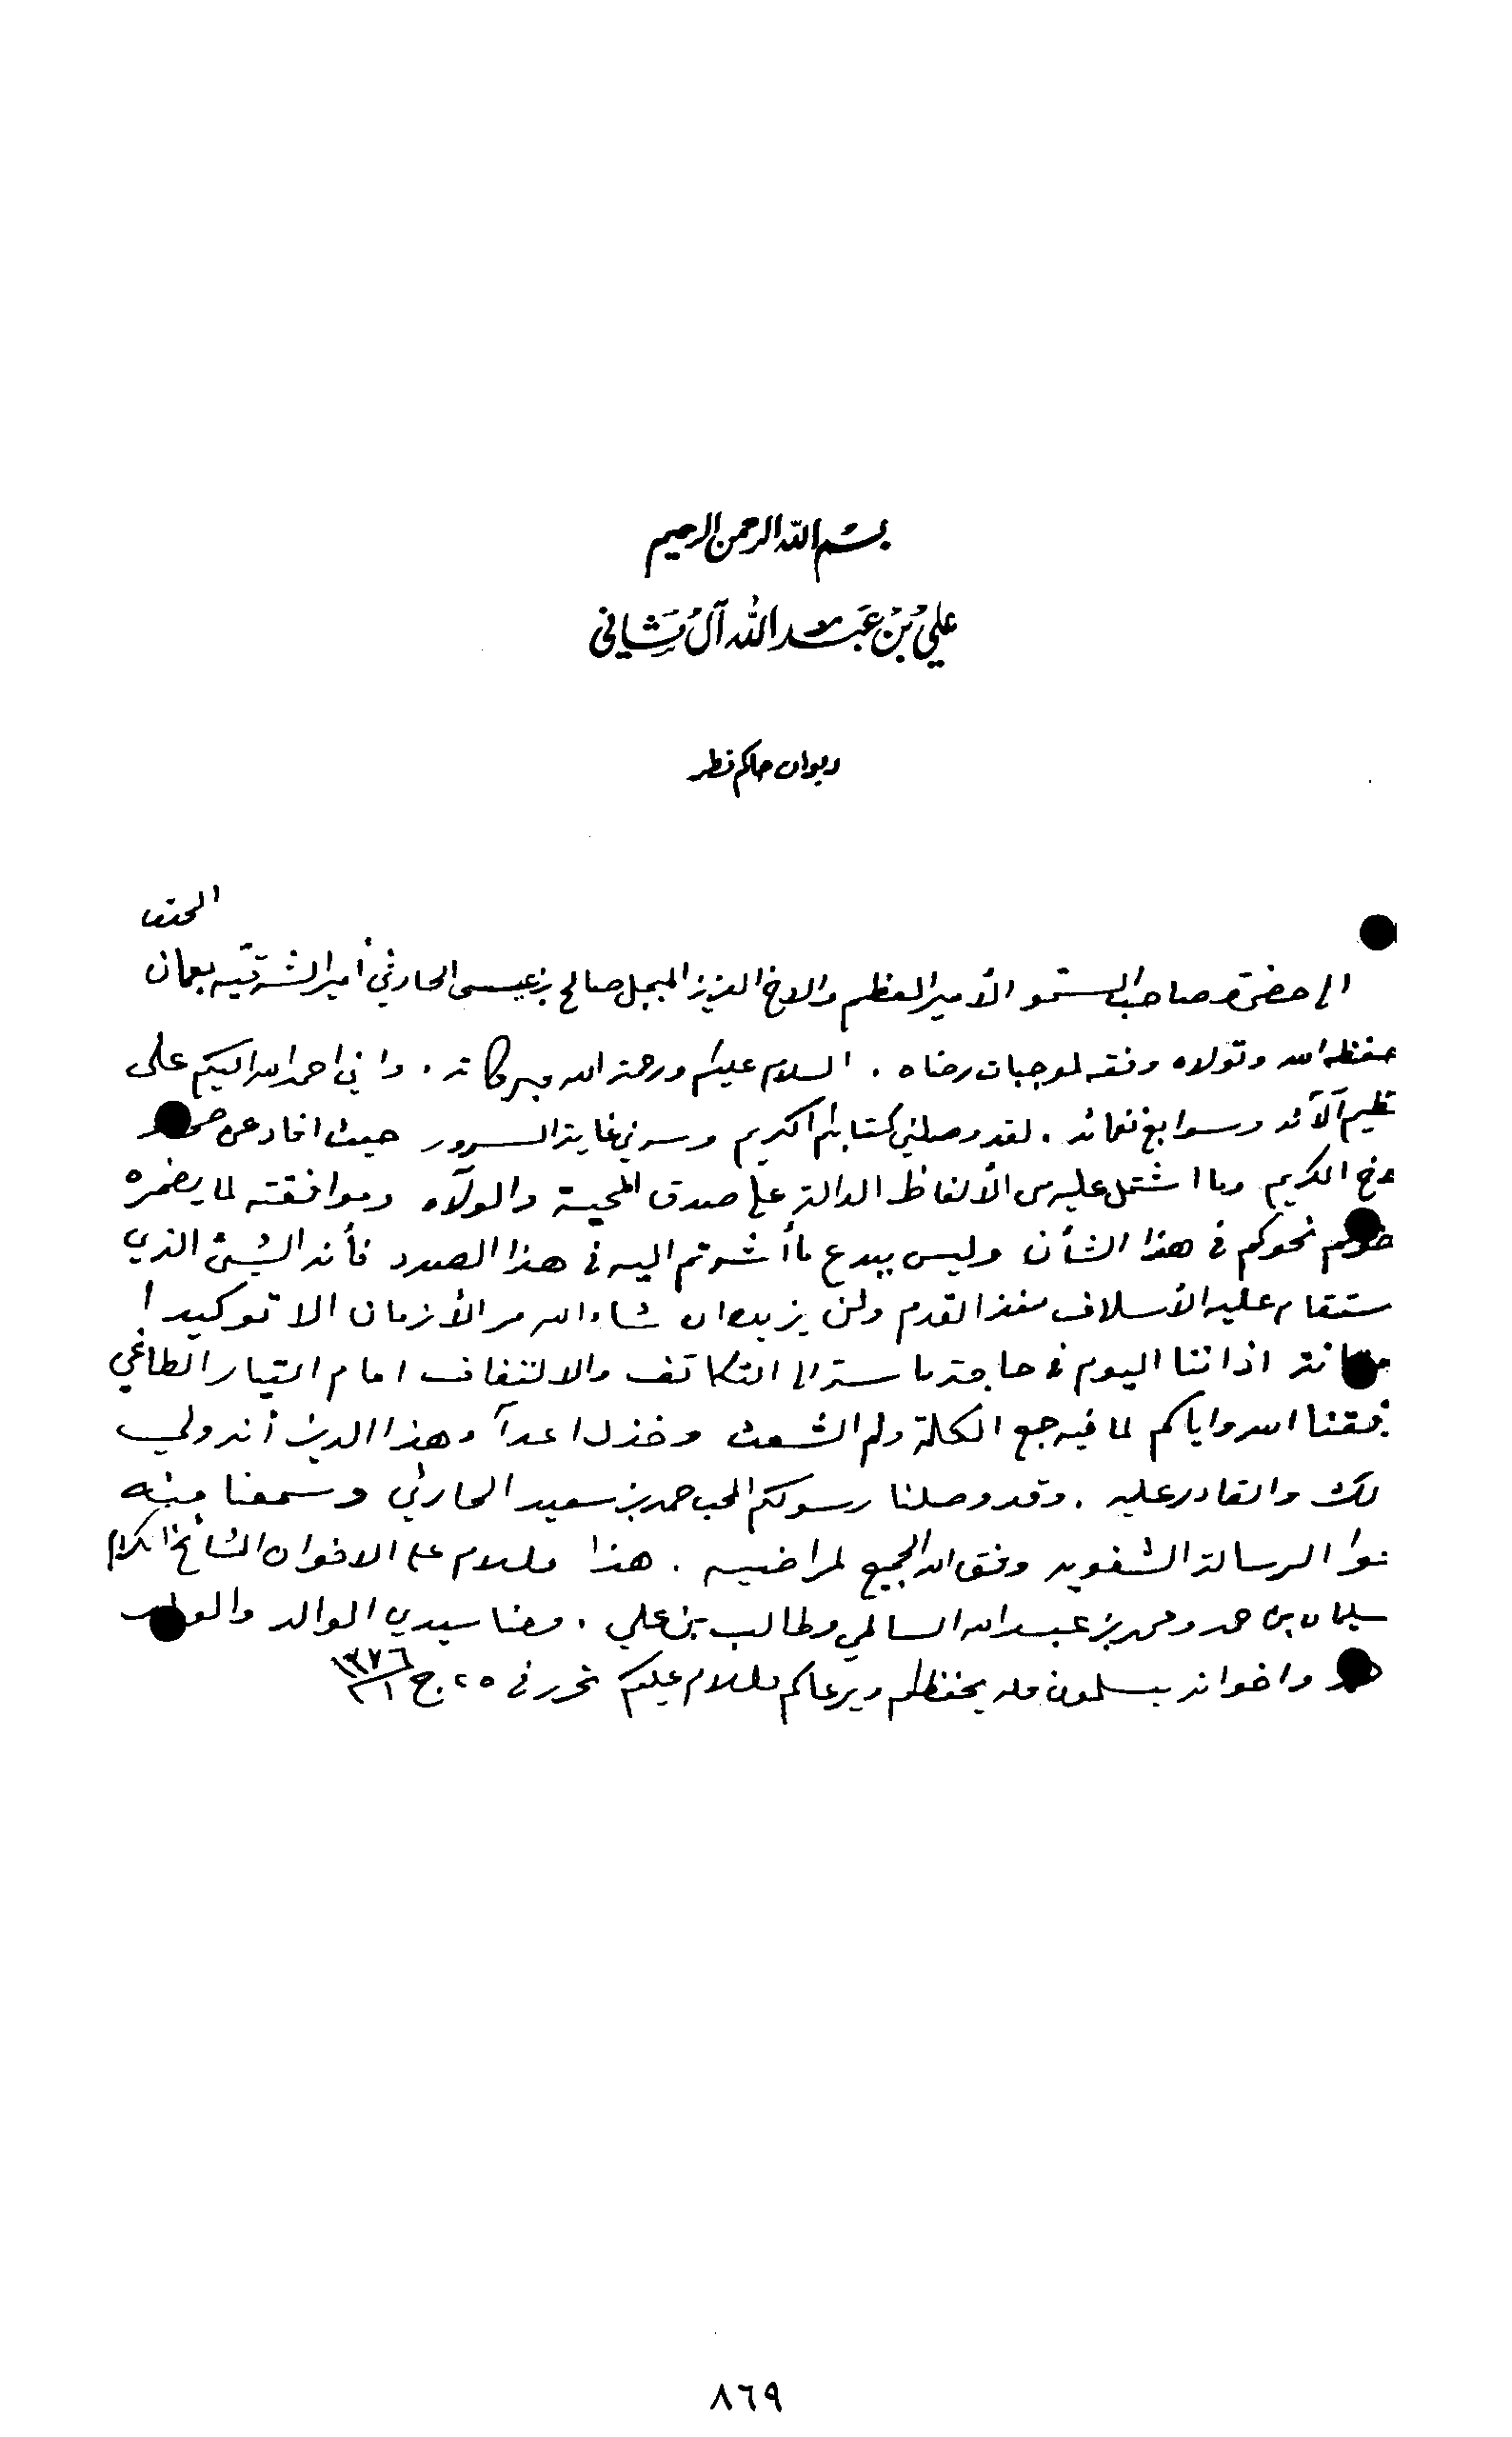 بسم الله الرحمن الرحيم
علي بن عبد الله آل ثاني
ديوان حاكم قطر
المحترم
الى حضرة صاحب السمو الأمير المعظم والاخ العزيز المبجل صالح بن عيسى الحارثي أمير الشرقيه بعمان
حفظه الله وتولاه وفقه لموجبات رضاه . السلام عليكم ورحمة الله وبركاته . واني احمد الله اليكم على
عظيم آلآئه وسوابغ نعمائه . لقد وصلني كتابكم الكريم وسرني غاية السرور حيث افاد عن
الاخ الكريم وما اشتمل عليه من الألفاظ الدالة على صدق المحبة والولآء وموافقته لما يضمره
نحوكم في هذا الشأن وليس ببدع ما أشرتم اليه في هذا الصدد فأنه الشيئ الذي
ستقام عليه الأسلاف منذ القدم ولن يزيده ان شاء الله مر الأزمان الا توكيدا
اذ اننا اليوم في حاجة ماسة الى التكاتف والالتفاف امام التيار الطاغي
وفقنا الله واياكم لما فيه جمع الكلمة ولم الشعث وخذل اعدآ هذا الدين أنه ولي
ذلك والقادر عليه . وقد وصلنا رسولكم المحب حمد بن سعيد الحارثي وسمعنا منه
الرسالة الشفويه وفق الله الجميع لمراضيه . هذا والسلام على الاخوان المشائخ الكرام
سليمان بن حمد ومحمد بن عبد الله السالمي وطالب بن علي . ومنا سيدي الوالد والولد
واخوانه يسلمون والله يحفظكم ويرعاكم والسلام عليكم تحرر في ٢٥ ج ١ ١٣٧٦
٨٦٩